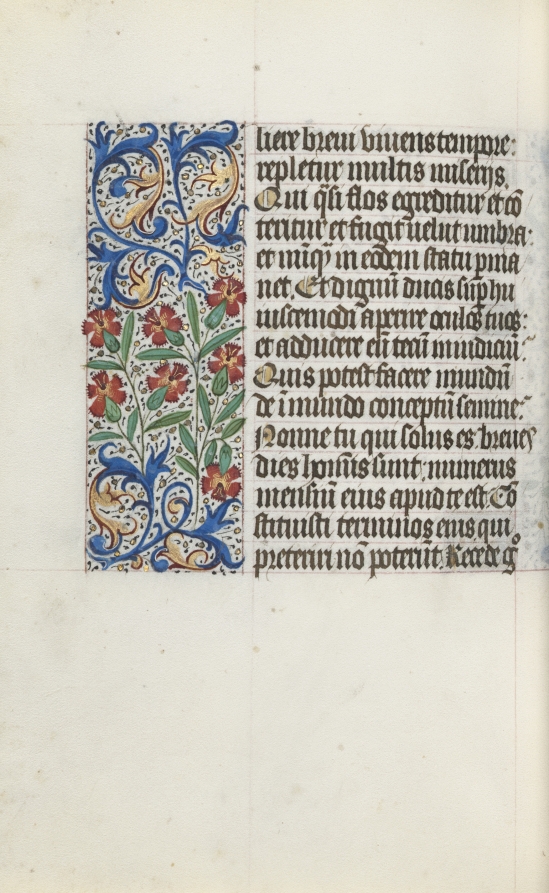 liere breui viuens tempore:
repletur multis miserijs.
Qui q̄si flos egreditur et cō
teritur et fugit uelut umbra:
et nūq̄ in eodem statu p̄ma
net. Et dignū ducis sup̄ hui
uscemodi aperire oculos tuos:
et adducere eū tecū in iudiciū.
Quis potest facere mundū
de īmundo conceptū semine:
Nonne tu qui solus es. breues
dies hoīnis sunt: numerus
mensiū eius apud te est. Cō
stituisti terminos eius qui
preteriri nō poterūt. Recede gͦ